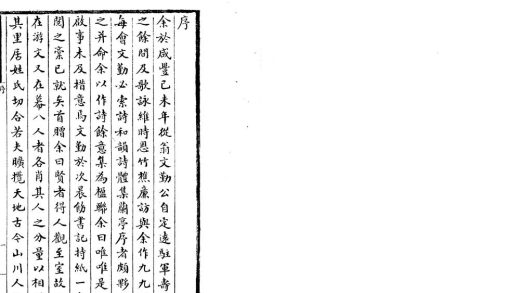 序
余於咸豐己未年從翁文勤公自定遠駐軍壽
之餘間及歌詠維時恩竹樵廉訪與余作九九
每會文勤必索詩和韻詩體集蘭亭序者頗夥
之并命余以作詩餘意集為楹聯余曰唯唯是
啟事未及措意焉文勤於次晨飭書記持紙一
閱之稾已就矣首贈余曰賢者得人觀至室故
在游文又在幕八人者各肖其人之分量以相
其里居姓氏切合若夫曠攬天地古今山川人
序